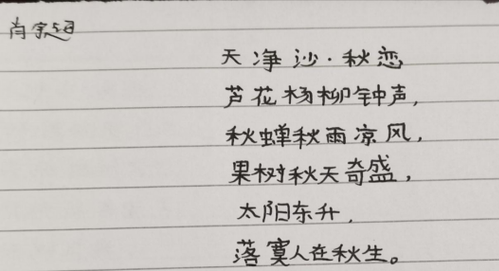 肖宗超
天净沙·秋恋
芦花杨柳钟声，
秋蝉秋雨凉风，
果树秋天奇盛，
太阳东升，
落寞人在秋生。